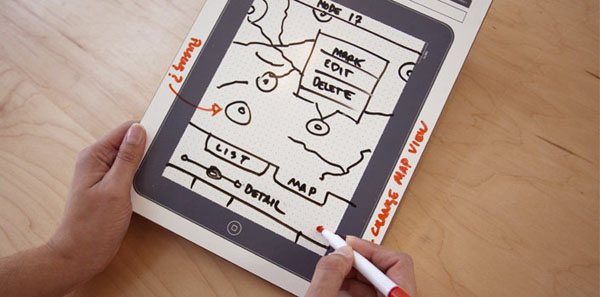 NODE 17
MARK
EDIT
DELETE
LIST
MAP
DETAIL
CHANGE MAP VIEW